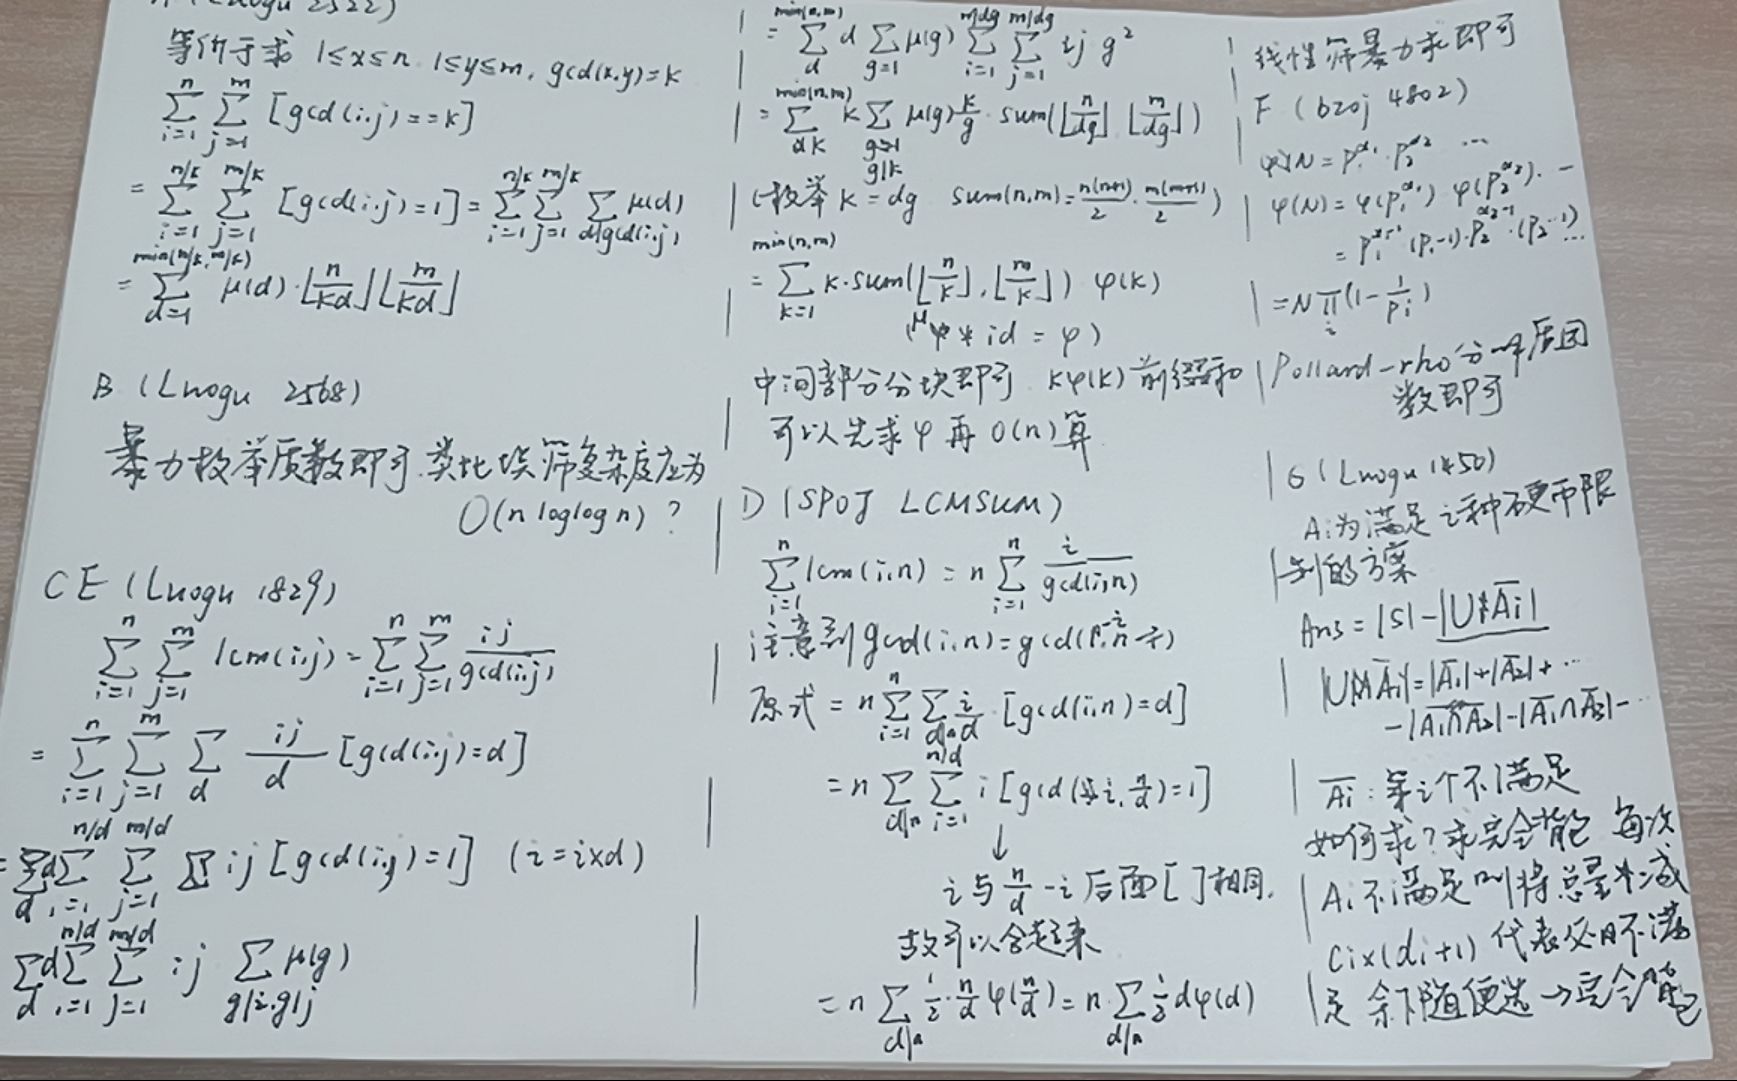 (Luogu 2522)
等价于求 1≤x≤n 1≤y≤m, gcd(x,y)=k
\sum_{i=1}^{n} \sum_{j=1}^{m} [gcd(i,j)==k]
= \sum_{i=1}^{n/k} \sum_{j=1}^{m/k} [gcd(i,j)=1] = \sum_{i=1}^{n/k} \sum_{j=1}^{m/k} \sum_{d|gcd(i,j)} μ(d)
= \sum_{d=1}^{min(n/k,m/k)} μ(d)·⌊\frac{n}{kd}⌋⌊\frac{m}{kd}⌋
B (Luogu 2568)
暴力枚举质数即可.类比埃筛复杂度应为
O(n loglog n) ?
CE (Luogu 1829)
\sum_{i=1}^{n} \sum_{j=1}^{m} lcm(i,j) = \sum_{i=1}^{n} \sum_{j=1}^{m} \frac{ij}{gcd(i,j)}
= \sum_{i=1}^{n} \sum_{j=1}^{m} \sum_{d} \frac{ij}{d} [gcd(i,j)=d]
= \sum_{d} d \sum_{i=1}^{n/d} \sum_{j=1}^{m/d} ij [gcd(i,j)=1] (i=i×d)
\sum_{d} d \sum_{i=1}^{n/d} \sum_{j=1}^{m/d} ij \sum_{g|i,g|j} μ(g)
= \sum_{d}^{min(n,m)} d \sum_{g=1} μ(g) \sum_{i=1}^{n/dg} \sum_{j=1}^{m/dg} ij g²
= \sum_{k}^{min(n,m)} k \sum_{g|k} μ(g) \frac{k}{g}·sum(⌊\frac{n}{dg}⌋,⌊\frac{m}{dg}⌋)
(枚举 k=dg sum(n,m)=\frac{n(n+1)}{2}·\frac{m(m+1)}{2})
= \sum_{k=1}^{min(n,m)} k·sum(⌊\frac{n}{k}⌋,⌊\frac{m}{k}⌋) φ(k)
(μ * id = φ)
中间部分分块即可 kφ(k)前缀和
可以先求φ再O(n)算
D (SPOJ LCMSUM)
\sum_{i=1}^{n} lcm(i,n) = n \sum_{i=1}^{n} \frac{i}{gcd(i,n)}
注意到gcd(i,n)=gcd(n-i
原式 = n \sum_{i=1}^{n} \sum_{d|n} \frac{i}{d} [gcd(i,n)=d]
= n \sum_{d|n} \sum_{i=1}^{n/d} i [gcd(i,\frac{n}{d})=1]
↓
i与\frac{n}{d}-i后面[ ]相同.
故可以合起来
= n \sum_{d|n} \frac{1}{2}·\frac{n}{d} φ(\frac{n}{d}) = n·\sum_{d|n} \frac{1}{2} dφ(d)
线性筛暴力求即可
F (bzoj 4802)
N = p_1^{α_1}·p_2^{α_2} ...
φ(N) = φ(p_1^{α_1}) φ(p_2^{α_2})...
= p_1^{α_1-1}(p_1-1)·p_2^{α_2-1}·(p_2-1)...
= N \prod_{i} (1-\frac{1}{p_i})
Pollard-rho分解质因
数即可
G (Luogu 1450)
A_i为满足i种硬币限
制的方案
Ans = |S| - |∪\overline{A_i}|
|∪\overline{A_i}| = |\overline{A_1}|+|\overline{A_2}|+...
-|\overline{A_1}∩\overline{A_2}|-|\overline{A_1}∩\overline{A_3}|-...
\overline{A_i}:第i个不满足
如何求?求完全背包 每次
A_i不满足则将总量减
C_i×(d_i+1) 代表必用不满
足 余下随便选→完全背包